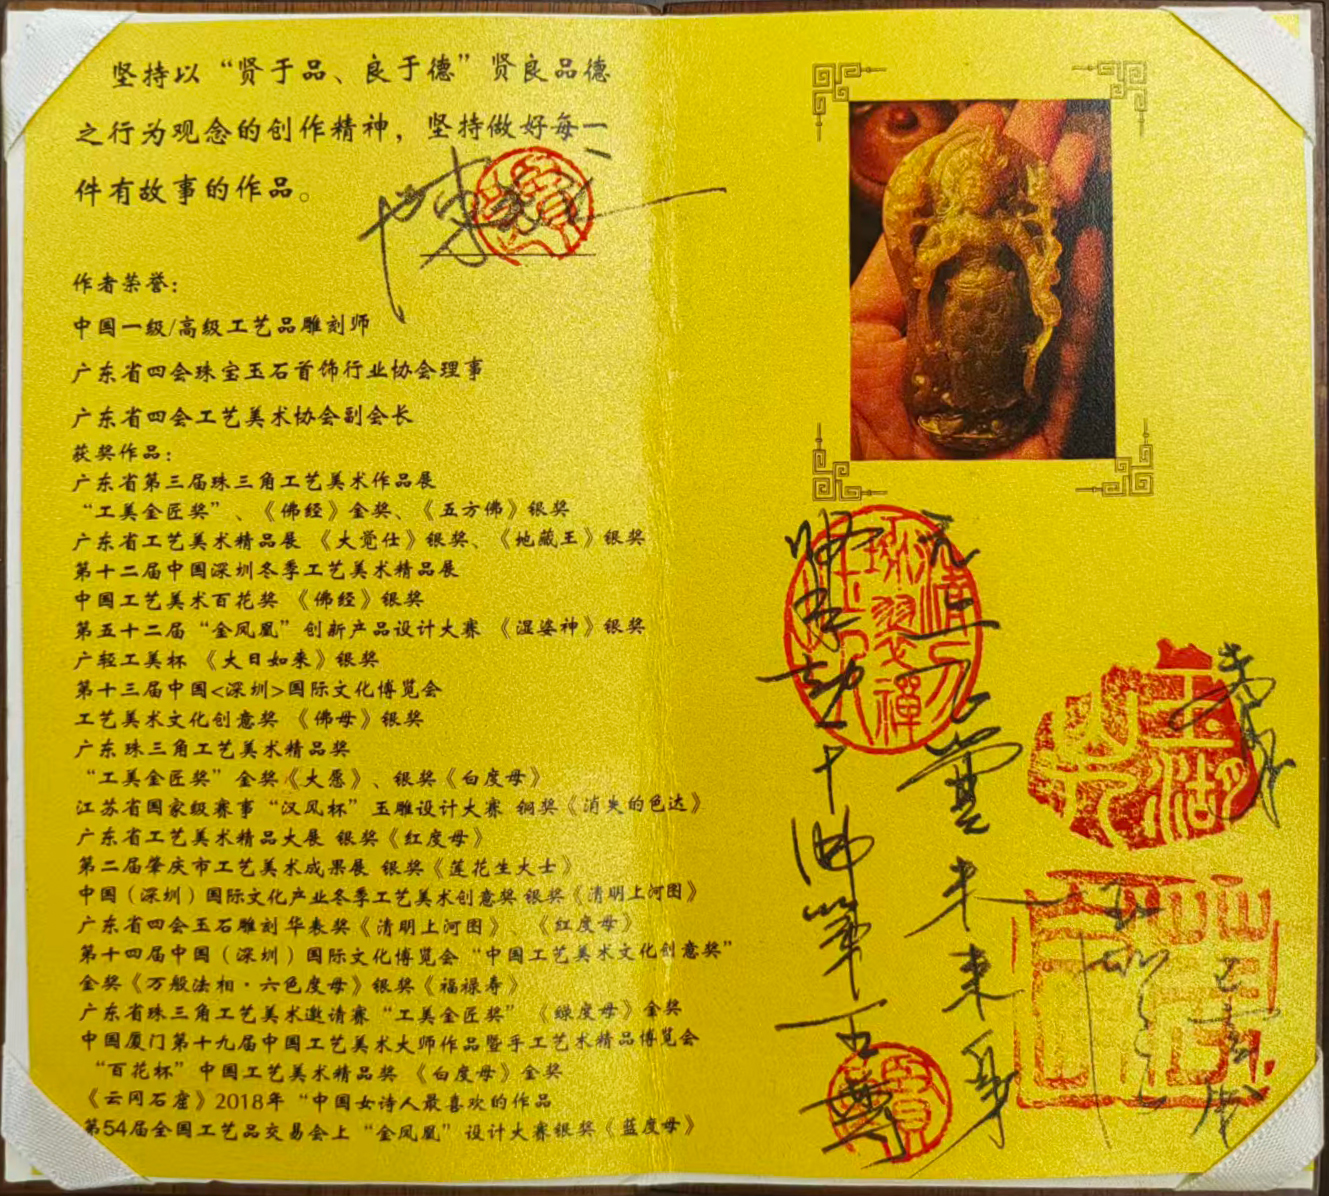 坚持以“贤于品、良于德”贤良品德
之行为观念的创作精神，坚持做好每一
件有故事的作品。
作者荣誉：
中国一级/高级工艺品雕刻师
广东省四会珠宝玉石首饰行业协会理事
广东省四会工艺美术协会副会长
获奖作品：
广东省第三届珠三角工艺美术作品展
“工美金匠奖”、《佛经》金奖、《五方佛》银奖
广东省工艺美术精品展 《大觉仕》银奖、《地藏王》银奖
第十二届中国深圳冬季工艺美术精品展
中国工艺美术百花奖 《佛经》银奖
第五十二届“金凤凰”创新产品设计大赛 《湿婆神》银奖
广轻工美杯 《大日如来》银奖
第十三届中国<深圳>国际文化博览会
工艺美术文化创意奖 《佛母》银奖
广东珠三角工艺美术精品奖
“工美金匠奖”金奖《大愿》、银奖《白度母》
江苏省国家级赛事“汉风杯”玉雕设计大赛 铜奖《消失的色达》
广东省工艺美术精品大展 银奖《红度母》
第二届肇庆市工艺美术成果展 银奖《莲花生大士》
中国（深圳）国际文化产业冬季工艺美术创意奖 银奖《清明上河图》
广东省四会玉石雕刻华表奖《清明上河图》、《红度母》
第十四届中国（深圳）国际文化博览会“中国工艺美术文化创意奖”
金奖《万般法相·六色度母》银奖《福禄寿》
广东省珠三角工艺美术邀请赛“工美金匠奖” 《绿度母》金奖
中国厦门第十九届中国工艺美术大师作品暨手工艺术精品博览会
“百花杯”中国工艺美术精品奖 《白度母》金奖
《云冈石窟》2018年“中国女诗人最喜欢的作品
第54届全国工艺品交易会上“金凤凰”设计大赛银奖《蓝度母》
未来身
十佛第一尊